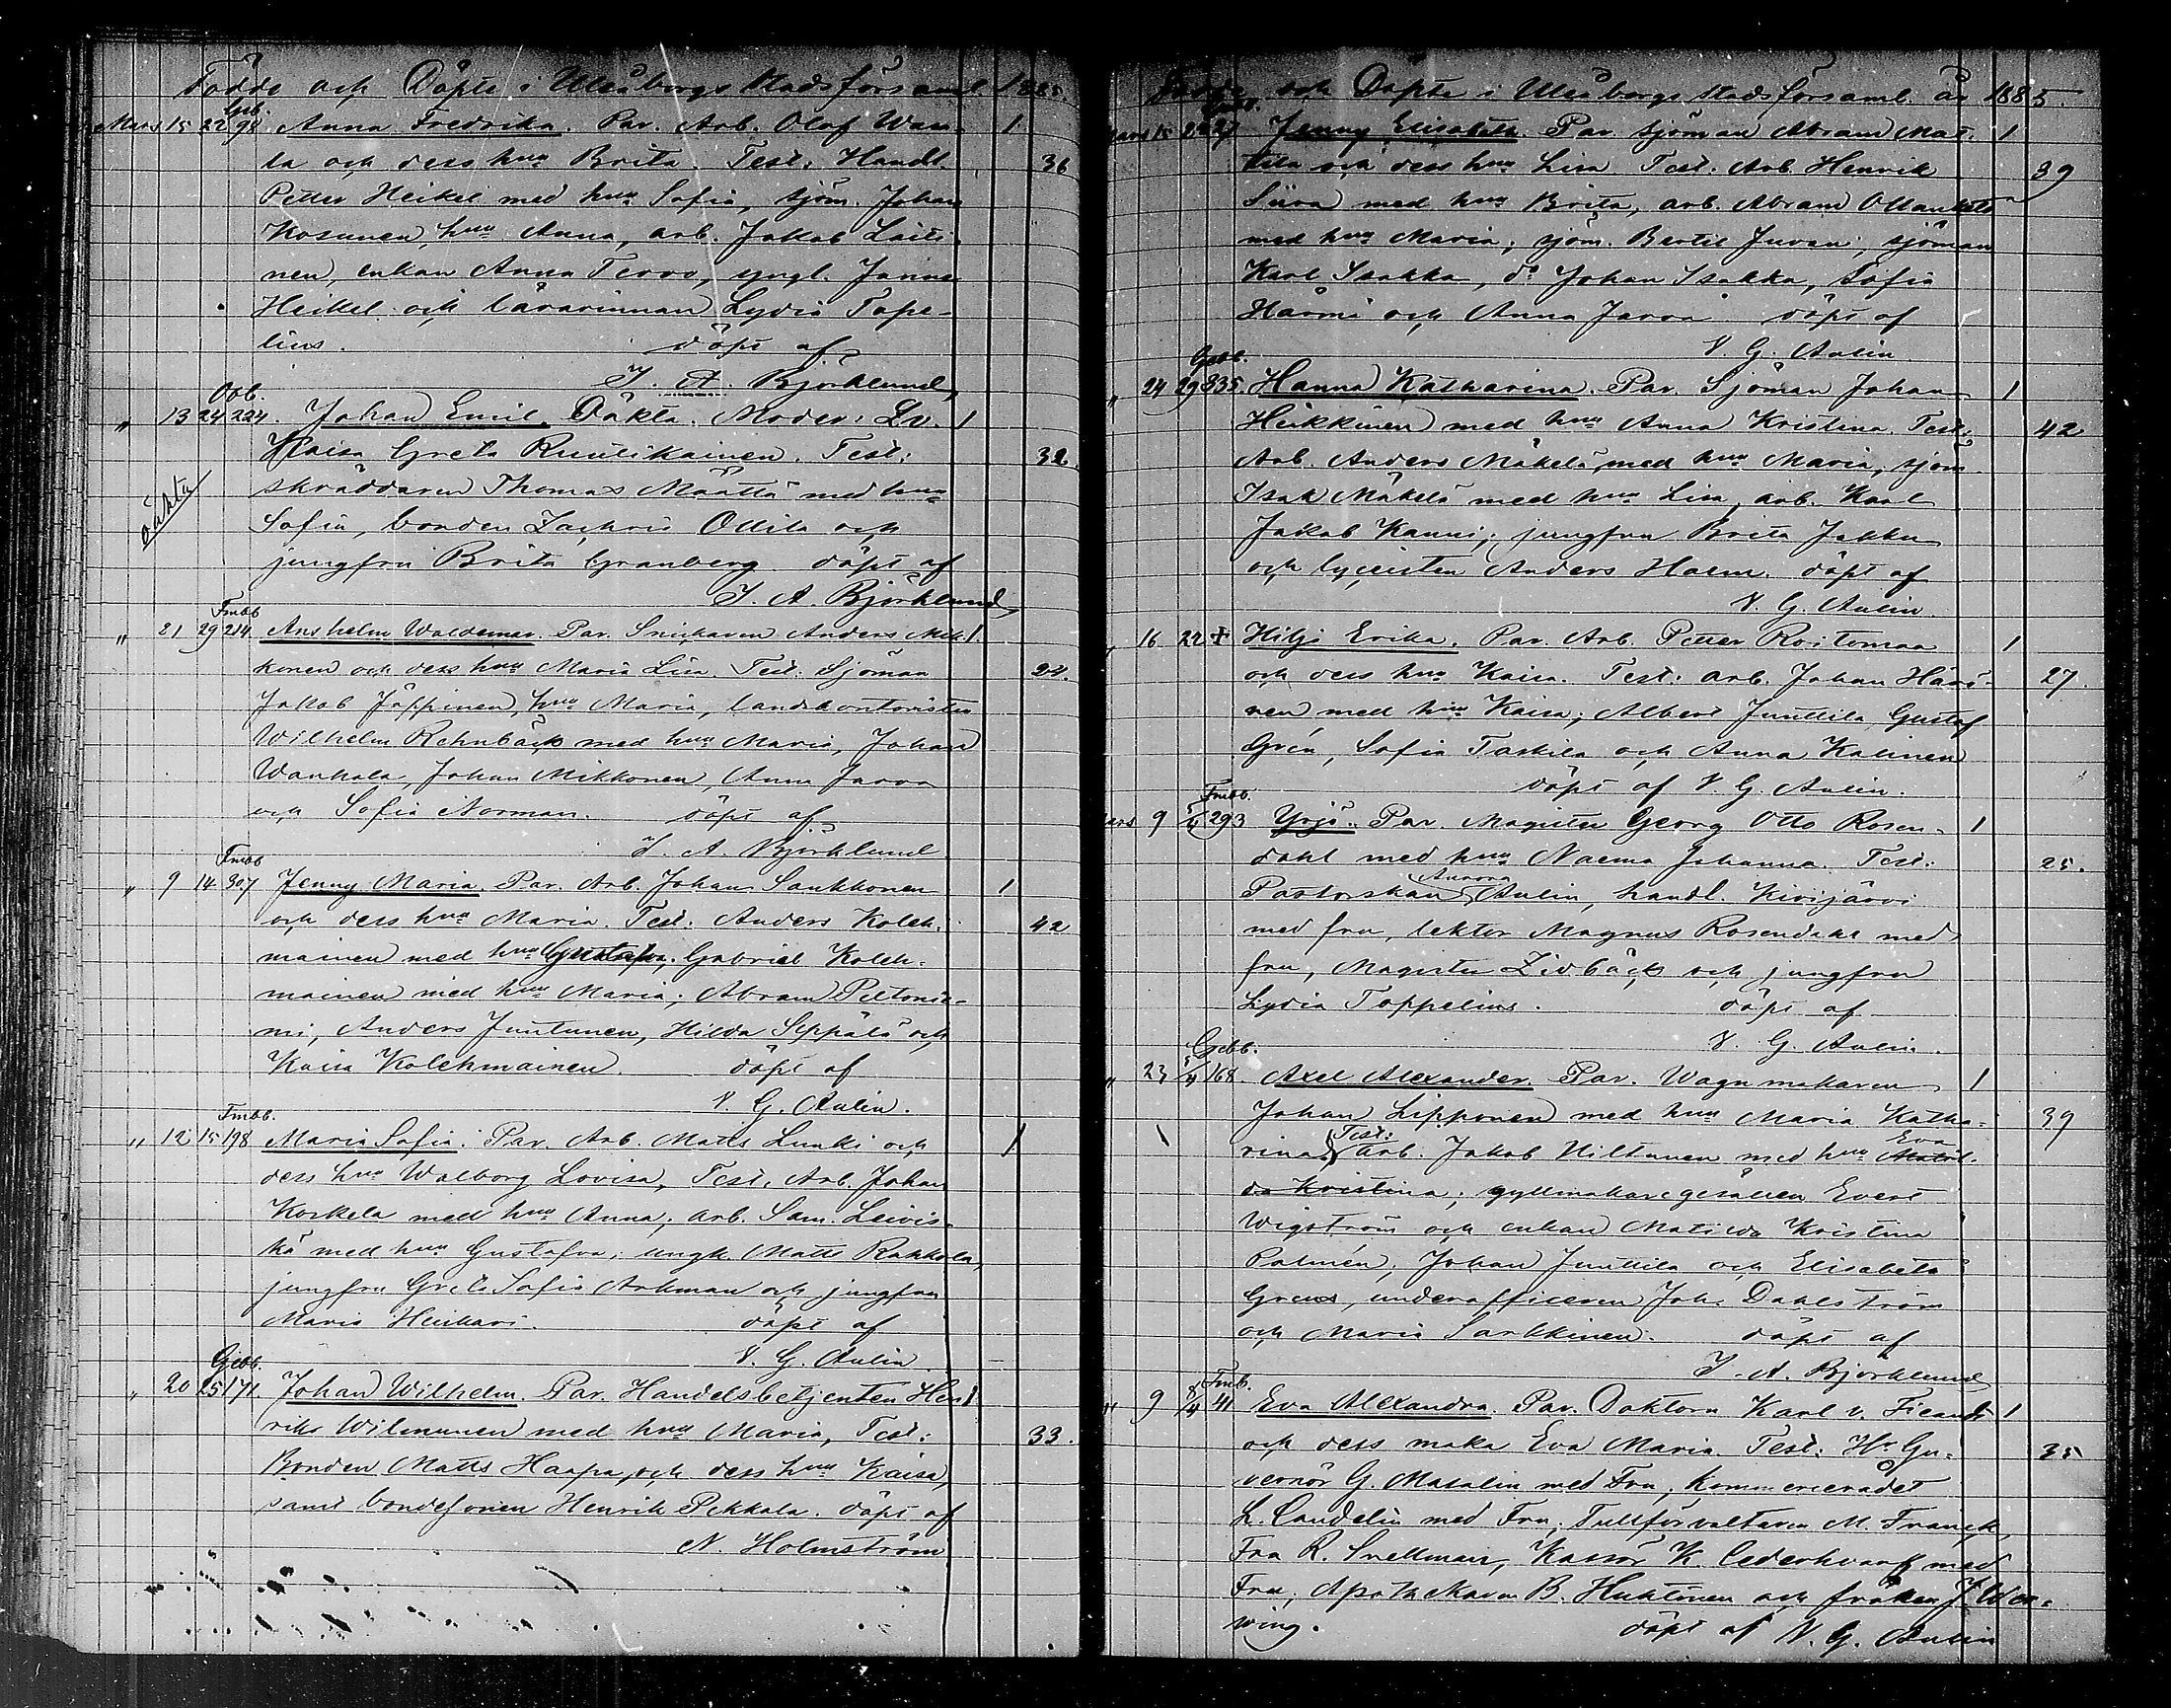 Födde och Döpte i Uleåborgs Stadsförsaml. 1885.
Gcb.
Mars 15 22 98 Anna Fredrika. Par. Arb. Olof Wan- 1
la och dess hu Brita. Test: Handl. 36
Petter Heikel med hu Sofia, sjöm. Johan
Kosunen, hu Anna, arb. Jakob Laiti-
nen, enkan Anna Tervo, yngl. Janne
Heikel och lärarinnan Lydia Tope-
lius. döpt af
J. A. Björklund
Obb.
" 13 24 224. Johan Emil. Oäkta. Moder: Lv. 1
Kaisa Greta Ruutikainen. Test: 32.
oäkta
skräddaren Thomas Määttä med hu
Sofia, bonden Zachris Ollila och
jungfru Brita Granberg. döpt af
J. A. Björklund
Fmbb
" 21 29 214. Anshelm Waldemar. Par. Snickaren Anders Mik- 1.
konen och dess hu Maria Lisa. Test: Sjöman 24.
Jakob Jäppinen, hu Maria, landskontoristen
Wilhelm Rehnbäck med hu Maria, Johan
Wankala, Johan Mikkonen, Anna Jarva
och Sofia Norman. döpt af
J. A. Björklund
Fmbb
" 9 14 307 Jenny Maria. Par. Arb. Johan Saukkonen 1
och dess hu Maria. Test: Anders Koleh- 42
mainen med hu Gustafva; Gabriel Koleh-
mainen med hu Maria; Abram Peltonie-
mi, Anders Juntunen, Hilda Seppälä och
Kaisa Kolehmainen. döpt af
V. G. Aulin.
Fmbb.
" 12 15 198 Maria Sofia. Par. Arb. Matts Lunki och 1
dess hu Walborg Lovisa, Test. Arb. Johan
Korkela med hu Anna; arb. Sam. Leivis-
kä med hu Gustafva; ungk. Matts Rahkola,
jungfru Greta Sofia Arkman och jungfru
Maria Heikari. döpt af
V. G. Aulin
Gcbb.
" 20 25 171 Johan Wilhelm. Par. Handelsbetjenten Hen- 1
rik Wilmunen med hu Maria, Test: 33.
Bonden Matts Haapa och dess hu Kaisa,
samt bondesonen Henrik Pekkala. döpt af
N. Holmström
Födde och Döpte i Uleåborgs stadsförsaml. år 1885.
Mars 15 22 27 Jenny Elisabeth. Par Sjöman Abram Mat- 1
tila och dess hu Lisa. Test: Arb. Henrik 39
Siira med hu Brita, arb. Abram Ollanketo
med hu Maria; sjöm. Bertil Juvani, sjöman
Karl Isakka, d:o Johan Isakka, Sofia
Härmä och Anna Jarva döpt af
V. G. Aulin
Gcbb.
" 24 29 335. Hanna Katharina. Par. Sjöman Johan 1
Heikkinen med hu Anna Kristina. Test: 42
Arb. Anders Mäkelä med hu Maria, sjöm.
Isak Mäkelä med hu Lisa, arb. Karl
Jakob Kanni; jungfru Brita Jakku
och lyceisten Anders Holm. döpt af
V. G. Aulin
" 16 22 + Hilja Erika. Par. Arb. Petter Rositomaa 1
och dess hu Kaisa. Test: arb. Johan Häri- 27.
nen med hu Kaisa; Albert Junttila, Gustaf
Grén, Sofia Taskila och Anna Kalinen
döpt af V. G. Aulin.
Fmbb.
Mars 9 5/4 293 Yrjö. Par. Magister Georg Otto Rosen- 1
dahl med hu Naema Johanna. Test: 25.
Aurora
Pastorskan Aulin, handl. Kivijärvi
med fru, lektor Magnus Rosendahl med
fru, Magister Zidbäck och jungfru
Lydia Toppelius. döpt af
V. G. Aulin.
Gcbb.
" 23 5/4 168. Axel Alexander. Par. Wagnmakaren 1
Johan Lipponen med hu Maria Katha- 39
Test: Eva
rina arb. Jakob Hiltunen med hu Matil-
da Kristina; gyllmakaregesällen Evert
Wigström och enkan Matilda Kristina
Palmén; Johan Junttila och Elisabeta
Greus, underofficeren Joh. Dahlström
och Maria Sarkkinen. döpt af
J. A. Björklund
Fmb.
" 9 8/4 41 Eva Alexandra. Par. Doktorn Karl v. Fieandt 1
och dess maka Eva Maria. Test: Hr Gu- 35
vernör G. Masalin med Fru; Kommercerådet
L. Candelin med Fru; Tullförvaltaren M. Franck,
Fru R. Snellman, Kassör K. Cederhvarf med
Fru; Apothekaren B. Huhtinen och fröken J. Wer-
wing. döpt af V. G. Aulin